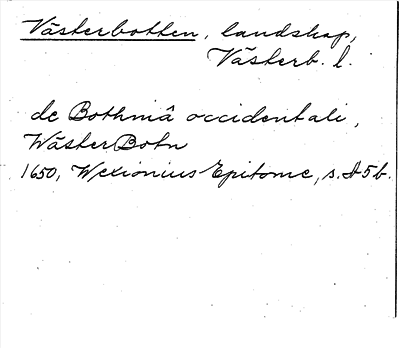 Västerbotten, landskap,
Västerb. l.
de Bothniâ occidentali,
WästerBotn
1650, Wexionius Epitome, s. d5b.